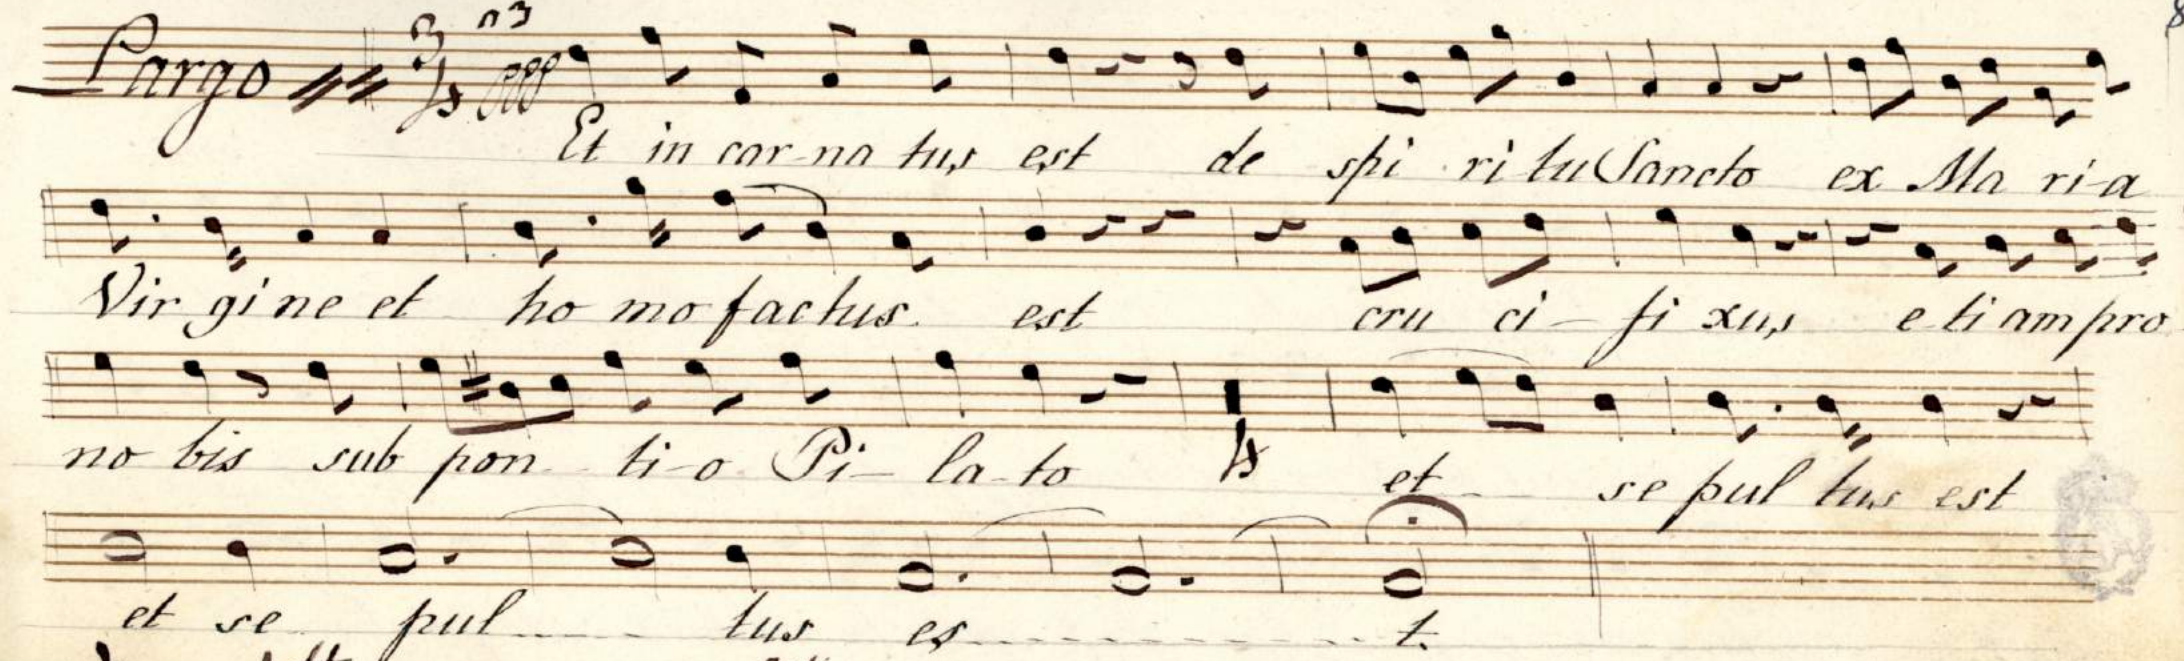 Largo
Et in car-na tus est de spi ri tu Sancto ex Ma ri-a
Vir gi ne et ho mo factus est cru ci-fi xus e-ti am pro
no bis sub pon ti-o Pi-la-to et se pul tus est
et se pul tus es t.